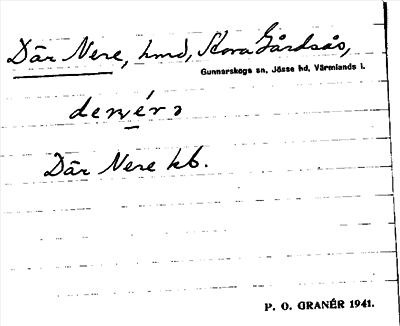 Där Nere, hmd, Stora Gårdsås,
Gunnarskogs sn, Jösse hd, Värmlands l.
Där Nere kb.
P. O. GRANÉR 1941.